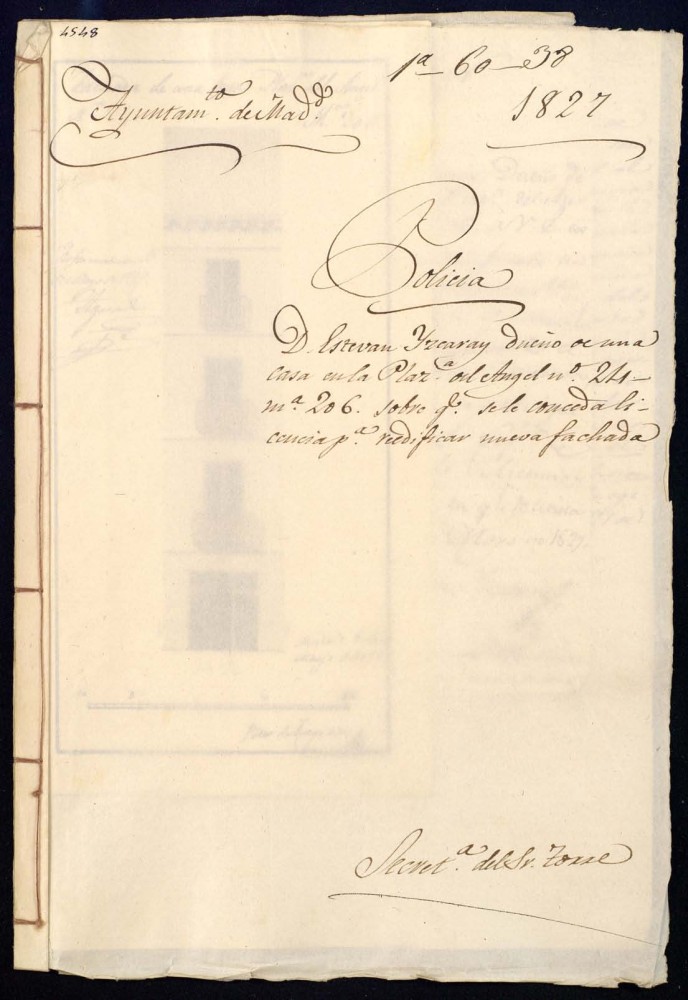 4548
1ª-60-38
Ayuntam.to de Mad.d
1827
Policia
D. Estevan Yzcaray dueño de una
casa en la Plaz.a del Angel nº. 24-
m.a 206. sobre q.e se le conceda li-
cencia p.a reedificar nueva fachada
Secret.a del Sr. Torre